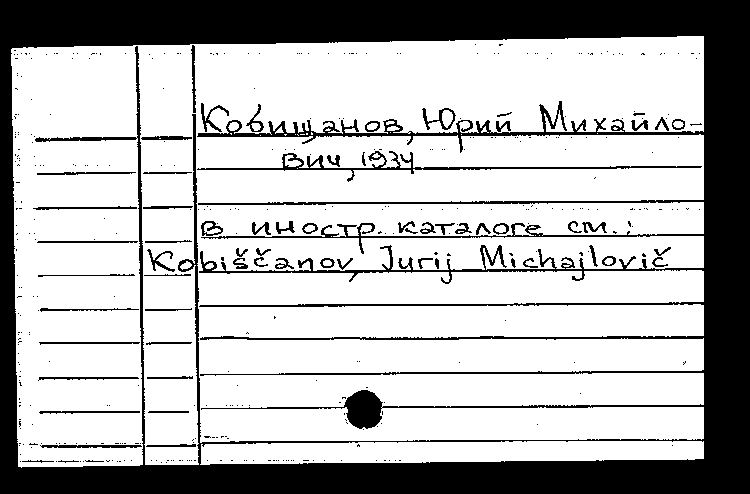 Кобищанов, Юрий Михайло-
вич, 1934
в иностр. каталоге см.:
Kobiščanov, Jurij Michajlovič